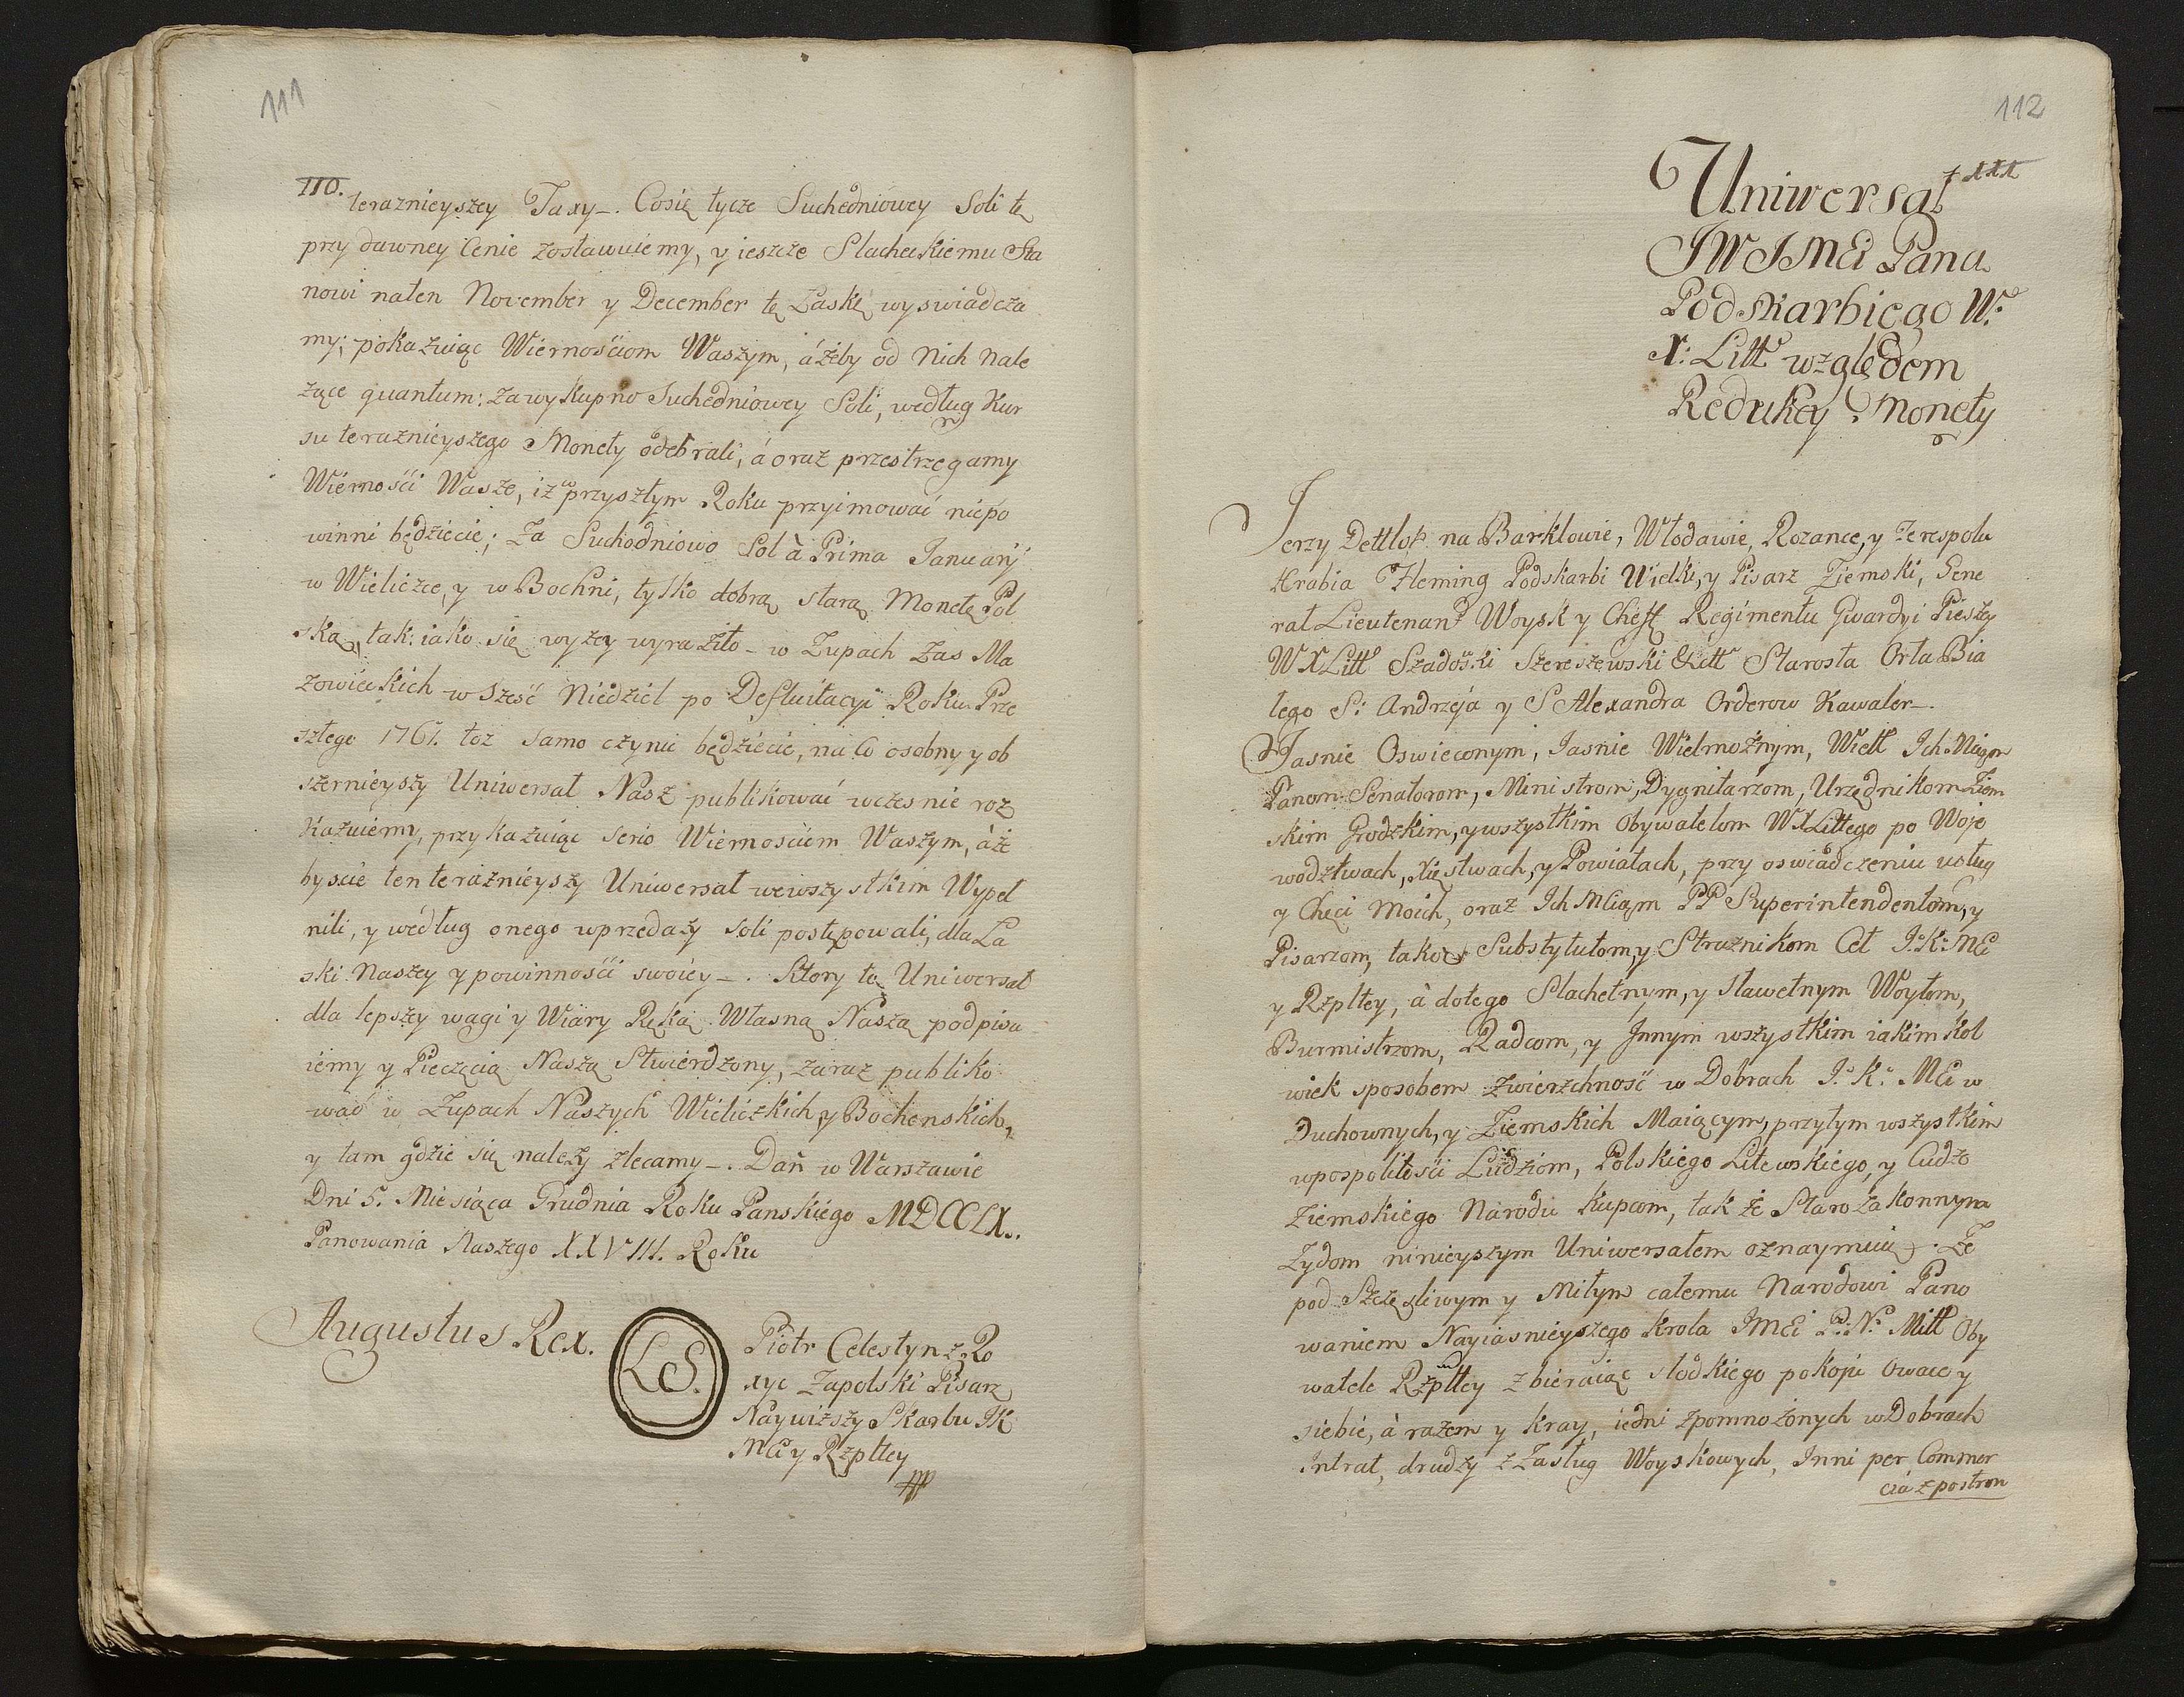 111
110.
teraznieyszey Taxy_. Cosię tycze Suchedniowey Soli tę
przy dawney Cenie zostawuiemy, y ieszcze Slacheckiemu Sta
nowi naten November y December tę Łaskę wyswiadcza
my; pokazuiąc Wiernościom Waszym, áżeby od nich nale
zące quantum: zawykupno Suchedniowey Soli, według Kur
su teraznieyszego Monety odebrali, á oraz przestrzegamy
Wierności Wasze, iz w przyszłym Roku przyimować niepo
winni będziecie; Za Suchodniowo Sol à Prima Januarij
w Wieliczce, y w Bochni, tylko dobrą starą Monetę Pol
ską, tak: iako się wyzey wyraziło _ w Zupach Zas Ma
zowieckich w Sześć Niedziel po Defluitacyi Roku Prze
szłego 1761. toz samo czynic będziecie, na co osobny y ob
szernieyszy Uniwersał Nasz publikować wczesnie roz
każuiemy, przykazuiąc serio Wiernościom Waszym, áże
byscie ten teraznieyszy Uniwersał wewszystkim Wypeł
nili, y według onego wprzedaży soli postępowali, dla Ła
ski Naszey y powinności swoiey _. Ktory tę Uniwersał
dla lepszey wagi y Wiary Ręką Własną Naszą podpisu
iemy y Pieczęcią Naszą Stwierdzony, zaraz publiko
wać w Zupach Naszych Wieliczkich y Bochenskich,
y tam gdzie się należy zlecamy _. Dań w Warszawie
Dni 5. Miesiąca Grudnia Roku Panskiego MDCCLX.
Panowania Naszego XXVIII. Roku
Augustus Rex.
LS.
Piotr Celestyn z Ro
xyc Zapolski Pisarz
Naywiższy Skarbu JK
MCi y Rzpltey
112
Uniwersał
JW JMCi Pana
Podskarbiego W.
X: Litt względem
Redukcy Monety
Jerzy Dettlof na Barklowie, Włodawie, Rozance, y Terespolu
Hrabia Fleming Podskarbi Wielki, y Pisarz Ziemski, Gene
rał Lieutenant Woysk y Cheff Regimentu Gwardyi Pieszey
WXLitt Szadowski Szereszewski Starosta Orła Bia
łego S: Andrzeja y S Alexandra Orderow Kawaler_.
Jasnie Oswieconym, Jasnie Wielmożnym, Wiell Ich
Panom Senatorom, Ministrom, Dygnitarzom, Urzędnikom Ziem
skim Grodzkim, y wszystkim Obywatelom WXLittego po Woje
wodztwach, Xięstwach, y Powiatach, przy oswiadczeniu usług
y Chęci Moich, oraz Ich MCiąm PP Superintendentom, y
Pisarzom, tako Substytutom, y Straznikom Ceł J:K:MCi
y Rzpltey, à dotego Slachetnym, y sławetnym Woytom,
Burmistrzom, Radcom, y Jnnym wszystkim iakimkol
wiek sposobem zwierzchność w Dobrach J: K: MCi w
Duchownych, y Ziemskich Maiącym, przytym wszystkim
wpospolitości Ludziom, Polskiego Litewskiego, y Cudzo
ziemskiego Narodu kupcom, tak że Starozakonnym
Zydom ninieyszym Uniwersałem oznaymuię. Że
pod Szczęsliwym y Miłym całemu Narodowi Pano
waniem Nayiasnieyszego Krola JMCi P: N: Mił Oby
watele Rzpltey zbieraiąc słodkiego pokoju owoce y
siebie, à razem y kray, iedni zpomnożonych w Dobrach
Jntrat, drudzy z Zasług Woyskowych, Jnni per Commer
cia z postron